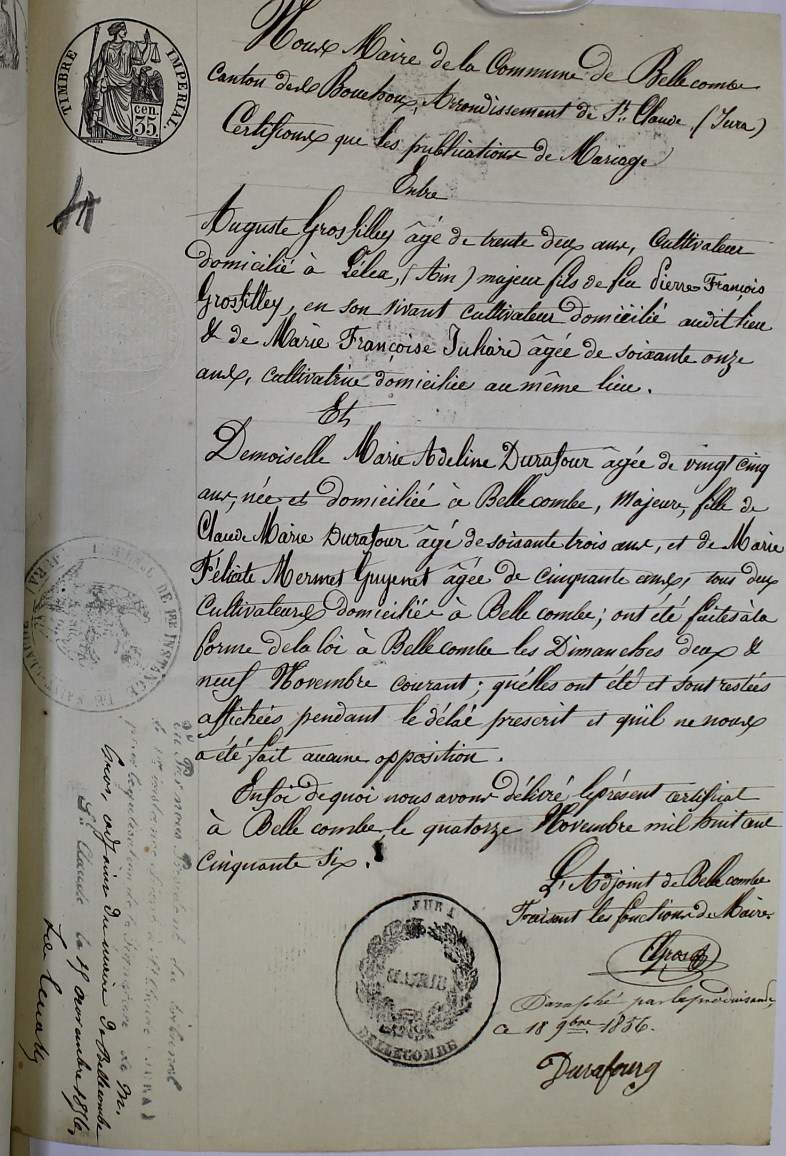 TIMBRE IMPERIAL
cen.
35
Nous Maire de la Commune de Bellecombe
Canton des Bouchoux, Arrondissement de St. Claude (Jura)
Certifions que les publications de Mariage
Entre
Auguste Grosfilley âgé de trente deux ans, Cultivateur
domicilié à Lélex, (Ain) majeur fils de feu Pierre François
Grosfilley, en son vivant cultivateur domicilié audit lieu
& de Marie Françoise Juhard âgée de soixante onze
ans, cultivatrice domiciliée au même lieu.
Et
Demoiselle Marie Adeline Durafour âgée de vingt cinq
ans, née et domiciliée à Bellecombe, Majeure, fille de
Claude Marie Durafour âgé de soixante trois ans, et de Marie
Félicité Mermet Guyenet âgée de cinquante ans, tous deux
Cultivateurs domiciliés à Bellecombe; ont été faites à la
forme de la loi à Bellecombe les Dimanches deux &
neuf Novembre courant; qu'elles ont été et sont restées
affichées pendant le délai prescrit et qu'il ne nous
a été fait aucune opposition.
En foi de quoi nous avons délivré le présent certificat
à Bellecombe, le quatorze Novembre mil huit cent
cinquante six.
L'Adjoint de Bellecombe
Faisant les fonctions de Maire
Gros
par le
ce 18 9bre 1856.
Durafourg
JURA
MAIRIE
BELLECOMBE
DE 1RE INSTANCE
Vu Par nous Président du tribunal
de 1re instance St Claude (JURA)
pour légalisation de la signature de M.
Gros, adjoint du maire de Bellecombe
St Claude le 15 novembre 1856